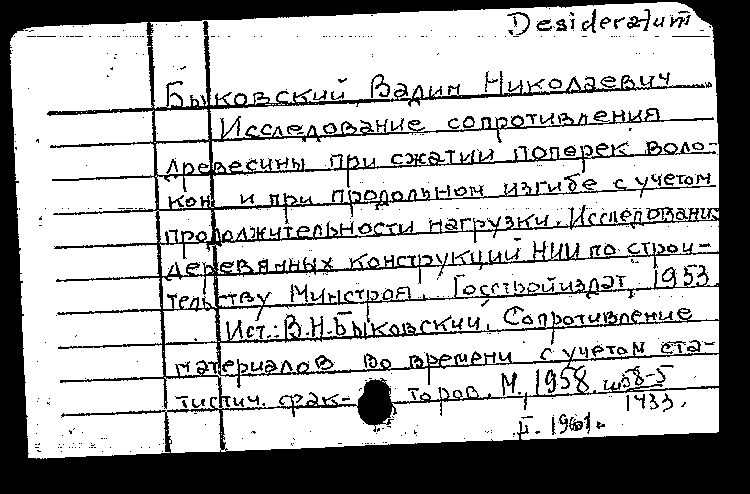 Desideratum
Быковский, Вадим Николаевич
Исследование сопротивления
древесины при сжатии поперек воло-
кон и при продольном изгибе с учетом
продолжительности нагрузки. Исследования
деревянных конструкций НИИ по строи-
тельству Минстроя. Госстройиздат, 1953.
Ист.: В.Н. Быковский. Сопротивление
материалов во времени с учетом ста-
тистич. фак- торов. М., 1958. ш58-5
1433.
II. 1961.